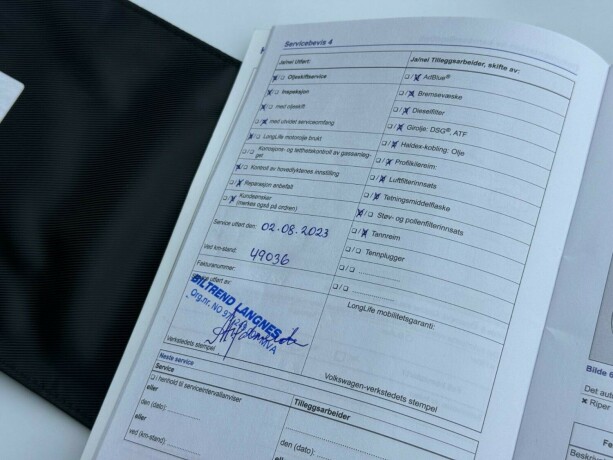 Servicebevis 4
Ja/nei Utført:
Oljeskiftservice
Inspeksjon
med oljeskift
med utvidet serviceomfang
LongLife motorolje brukt
Korrosjons- og tetthetskontroll av gassanleg-
get
Kontroll av hovedlyktenes innstilling
Reparasjon anbefalt
Kundeønsker
(merkes også på ordren)
Service utført den: 02.08.2023
Ved km-stand: 49036
Fakturanummer:
utført av:
BILTREND LANGNES
Org.nr. NO
Verkstedets stempel
Ja/nei Tilleggsarbeider, skifte av:
AdBlue®
Bremsevæske
Dieselfilter
Girolje: DSG®, ATF
Haldex-kobling: Olje
Profilkilereim:
Luftfilterinnsats
Tetningsmiddelflaske
Støv- og pollenfilterinnsats
Tannreim
Tennplugger
LongLife mobilitetsgaranti:
Volkswagen-verkstedets stempel
Neste service
Service
i henhold til serviceintervallanviser
eller
den (dato):
eller
ved (km-stand):
Tilleggsarbeider
den (dato):
eller
Bilde 6
Det auto
Riper
Fe
Beskriv